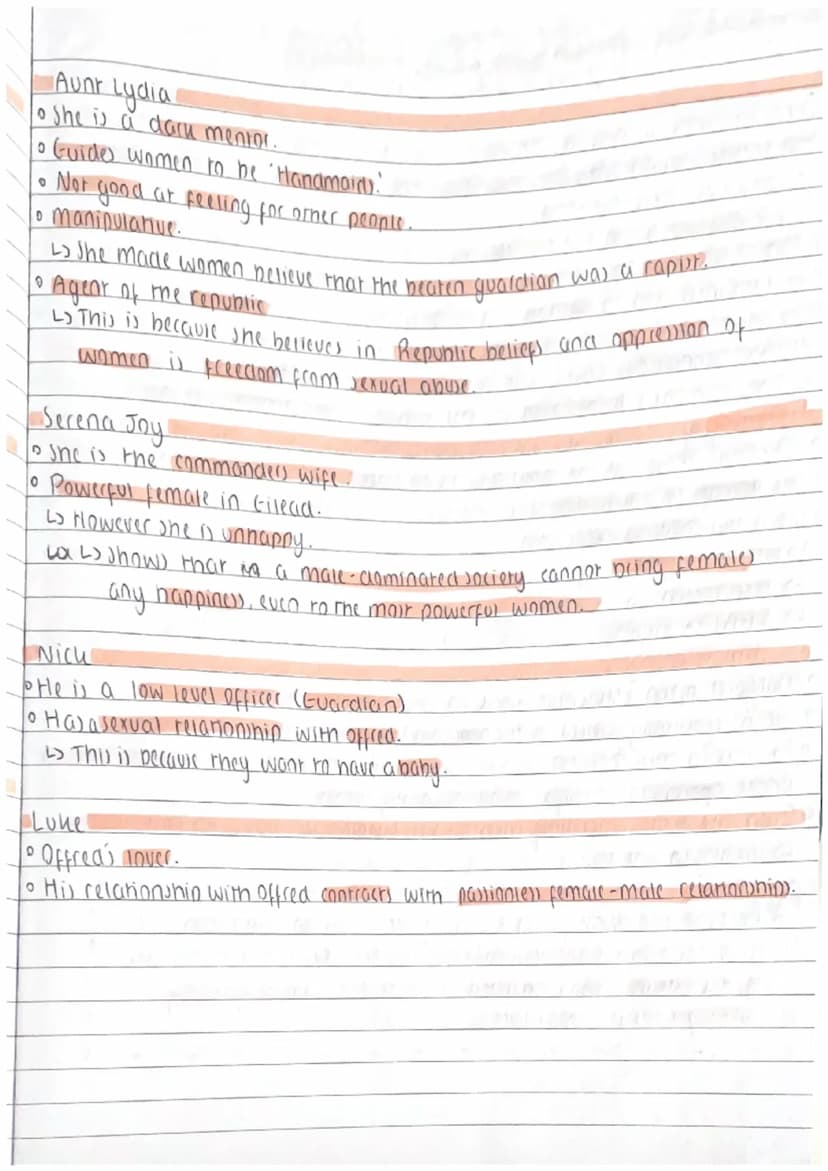 Aunt Lydia
• She is a dark mentor.
• Guides women to be 'Handmaids.'
• Not good at feeling for other people.
• manipulative.
↳ She made women believe that the beaten guardian was a rapist.
• Agent of the republic
↳ This is because she believes in Republic beliefs and oppression of
women is freedom from sexual abuse.
Serena Joy
• She is the commanders wife.
• Powerful female in Gilead.
↳ However she is unhappy.
↳ Shows that a male-dominated society cannot bring females
any happiness, even to the most powerful women.
Nick
• He is a low level officer (Guardian)
• Has a sexual relationship with offred.
↳ This is because they want to have a baby.
Luke
• Offred's lover.
• His relationship with Offred contracts with passionless female-male relationships.